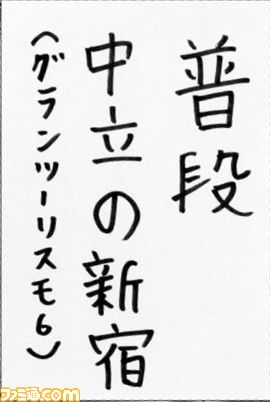 普段
中立の新宿
(グランツーリスモ6)
ファミ通.com